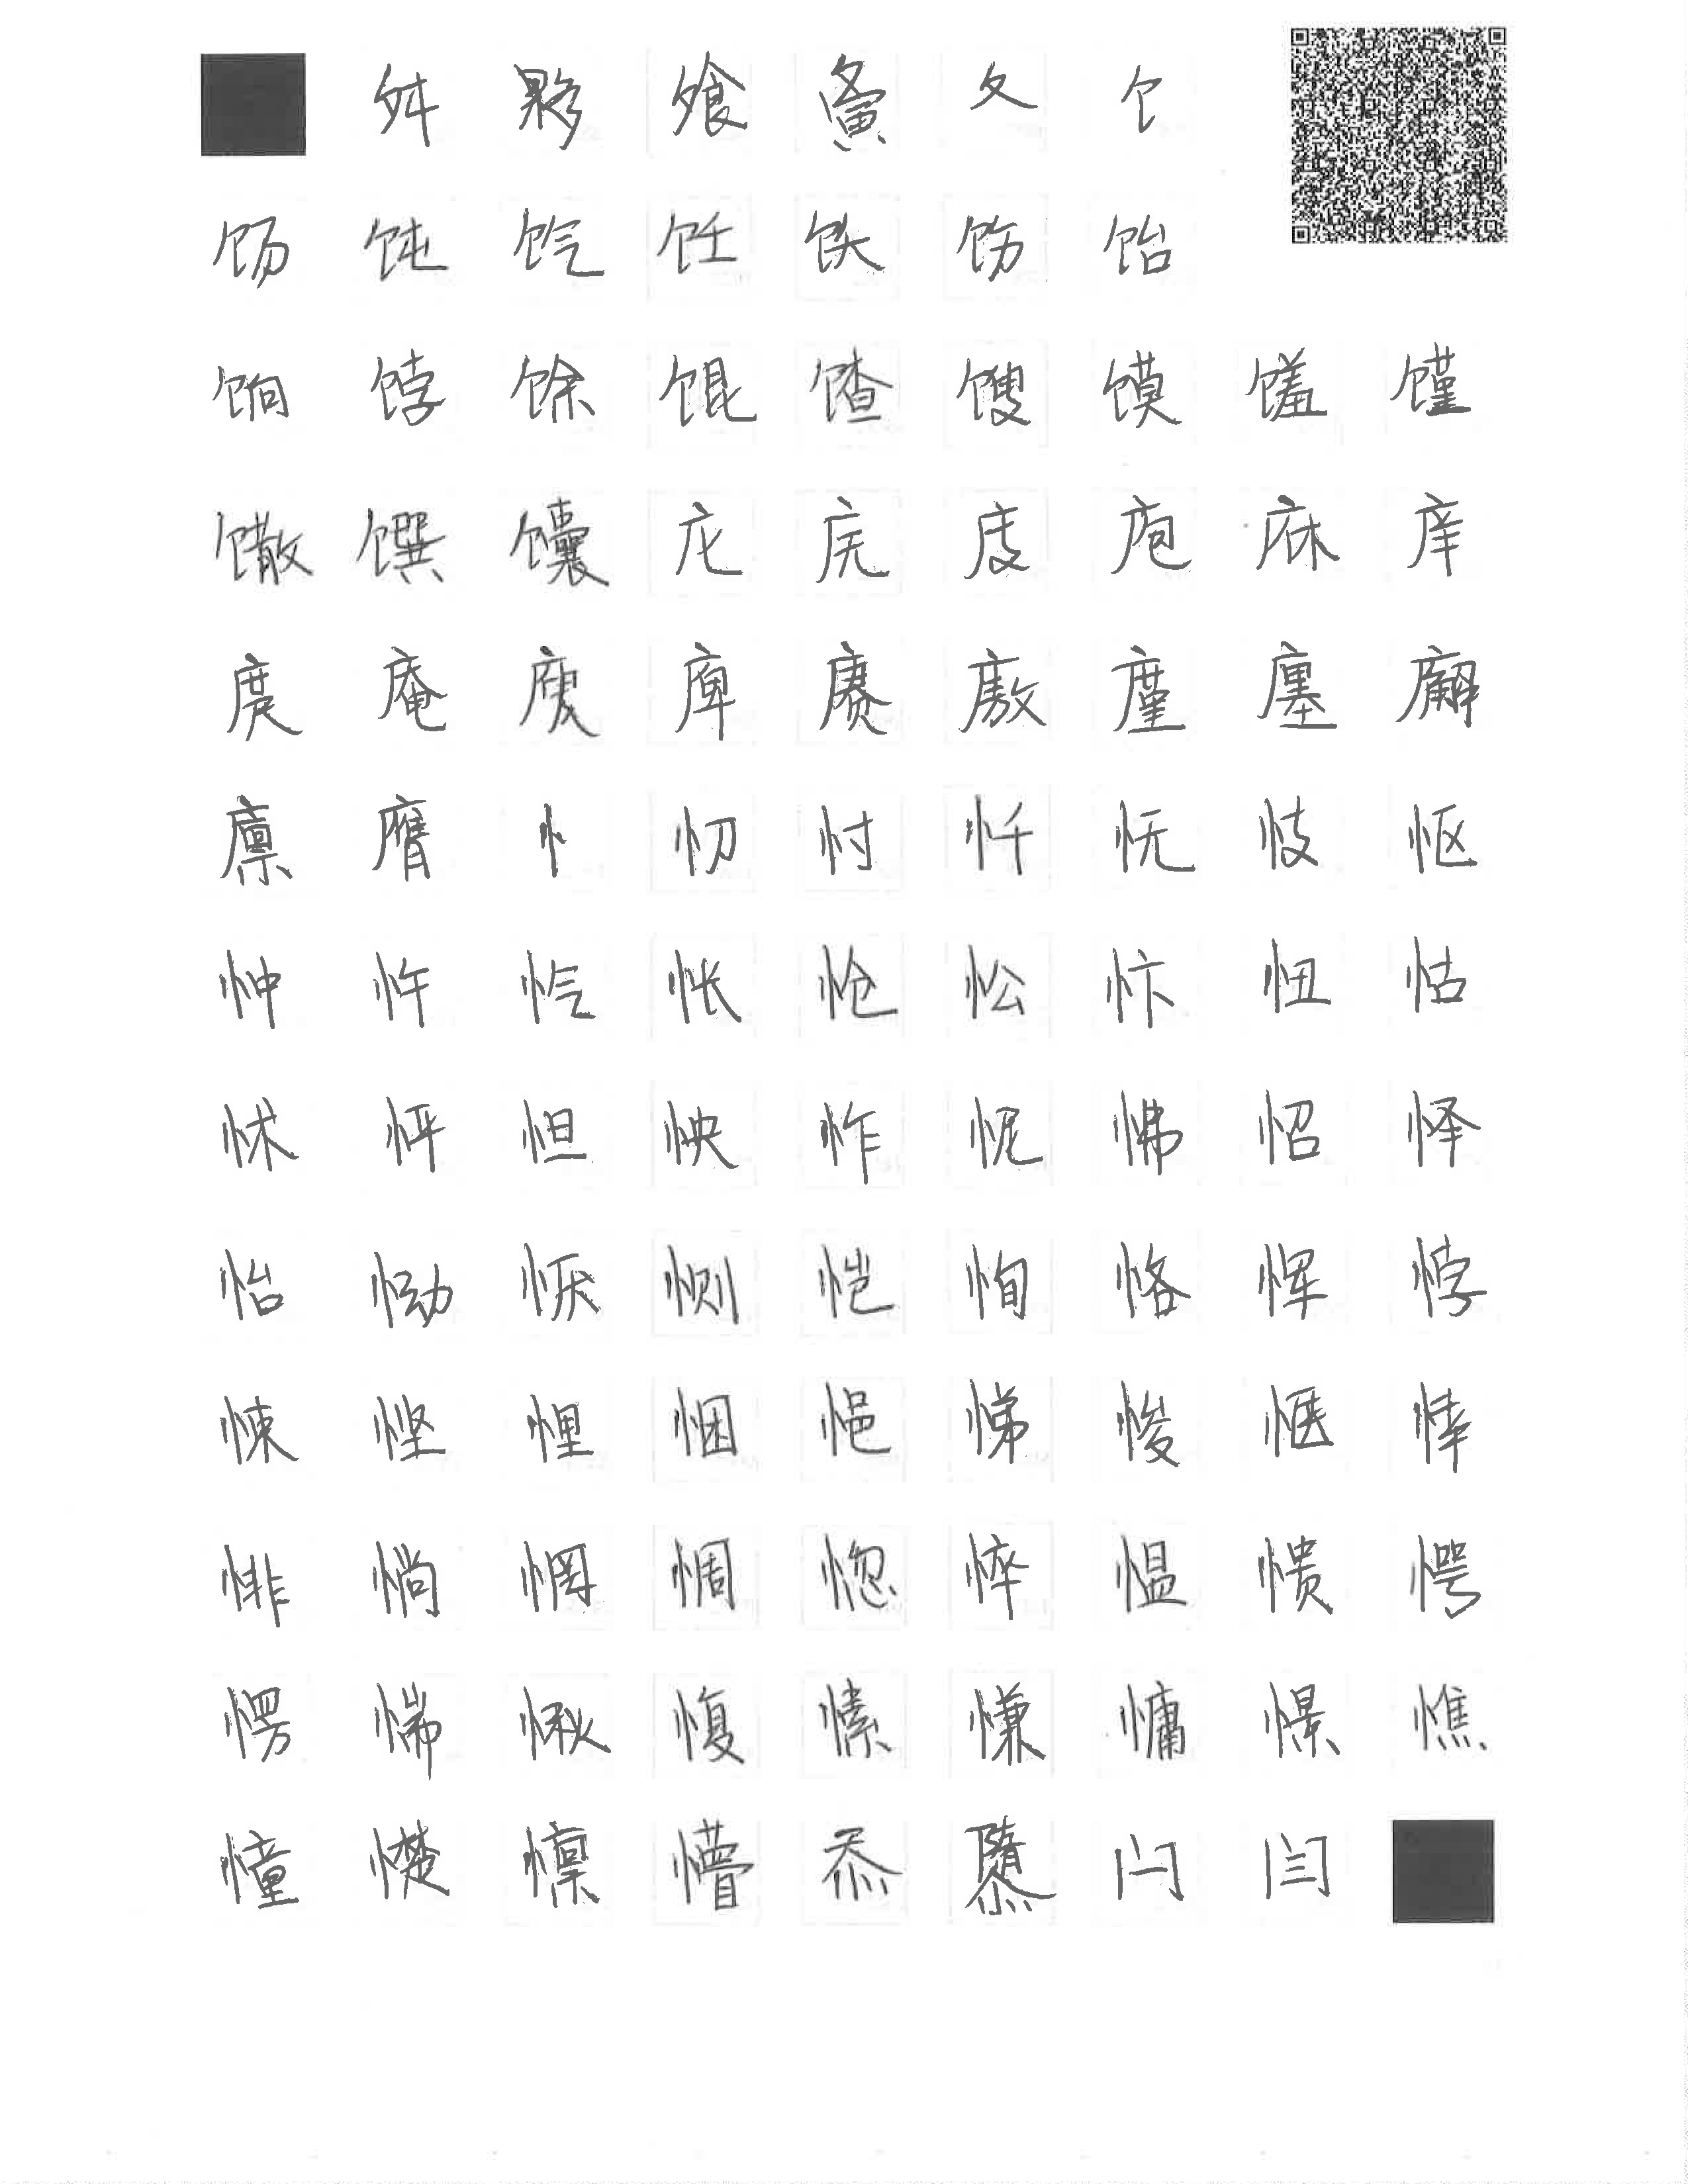 舛夥飧夤夂饣
饧饨饩饪饫饬饴
饷饽馀馄馇馊馍馐馑
馓馔馕庀庑庋庖庥庠
庹庵庾庳赓廒廑廛廨
廪膺忄忉忖忏怃忮怄
忡忤忾怅怆忪忭忸怙
怵怦怛怏怍怩怫怊怿
怡恸恹恻恺恂恪恽悖
悚悭悝悃悒悌悛惬悻
悱惝惘惆惚悴愠愦愕
愣惴愀愎愫慊慵憬憔
憧憷懔懵忝隳闩闫